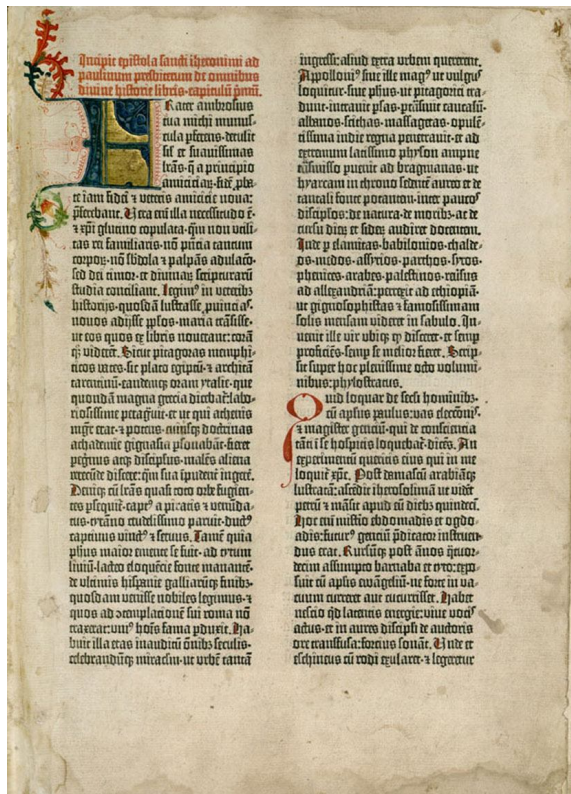 Incipit epistola sancti iheronimi ad
paulinum presbiterum de omnibus
divine historie libris· capitulũ pꝛimũ.
Frater ambrosius
tua michi munus-
cula pferens· detulit
sil' et suauissimas
lr̃as· q̃ a principio
amiciciaꝝ· fidẽ pba-
te iam fidei ⁊ veteris amicicie noua:
pferebant. Vera eni illa necessitudo ẽ·
⁊ xp̃i glutino copulata· qm̃ non vtili-
tas rei familiaris· nõ pñcia tantum
corpoꝝ· nõ sbdola ⁊ palpãs adulaco·
sed dei timor· et diuinaꝝ scripturarũ
studia conciliant. Legim⁹ in veterib⁹
historijs· quosdã lustrasse puincias·
nouos adijsse pplos· maria trãsisse·
ut eos quos ex libris nouerant: corã
qꝫ viderẽt. Sicut pitagoras memphi-
ticos vates· sic plato egiptũ· ⁊ architã
tarentinũ· eandemqꝫ oram ytalie· que
quondã magna grecia dicebat̃: labo-
riosissime peragrauit· et ut qui athenis
mgr̃ erat· ⁊ potens· cuiusqꝫ doctrinas
achademie gignasia psonabãt· fieret
pegrinus atqꝫ discipulus· malẽs aliena
verecũde discere: qm̃ sua ĩpudẽt̃ ingere.
Deniqꝫ cũ lr̃as quasi toto orbe fugien-
tes psequit̃· capt⁹ a piratis ⁊ venũda-
tus· tyrãno crudelissimo paruit· duct⁹
captiuus vinct⁹ ⁊ seruus. Tamẽ quia
phus maior emente se fuit· ad tytum
liuiũ· lacteo eloquẽcie fonte manantẽ·
de vltimis hispanie galliarũqꝫ finib⁹·
quosdam venisse nobiles legimus· ⁊
quos ad ↄtemplacionẽ sui roma nõ
traxerat: vni⁹ hoĩs fama pduxit. Ha-
buit illa etas inauditũ oĩb⁹ seculis·
celebrandũqꝫ miraclm̃· ut vrbẽ tantã
ingressi: aliud extra vrbem quererent.
Appolloni⁹ siue ille mag⁹ ut vulgus
loquitur· siue phus· ut pitagorici tra-
dunt· intrauit psas· ptrãsiuit caucasũ·
albanos· scithas· massagetas· opulẽ-
tissima indie regna penetrauit· et ad
extremum latissimo physon ampne
trãsmisso puenit ad bragmanas· ut
hyarcam in throno sedentẽ aureo et de
tantali fonte potantem· inter paucos
disciplos· de natura· de morib⁹· ac de
cursu dieꝝ et sideꝝ audiret docentem.
Inde p elamitas· babilonios· chalde-
os· medos· assyrios· parthos· syros·
phenices· arabes· palestinos· reũsus
ad allexandriã: perrexit ad ethiopiã·
ut gignosophistas ⁊ famosissimam
solis mensam videret in sabulo. In-
uenit ille vir vbiqꝫ qd disceret· et semp
proficiẽs· semp se melior fieret. Scrip-
sit super hoc plenissime octo volumi-
nibus: phylostratus.
Quid loquar de seculi hominib⁹·
cũ apl̃us paulus: vas electiõis·
⁊ magister genciũ· qui de consciencia
tãti ĩ se hospitis loquebat̃· dicẽs. An
experimentũ queritis eius qui in me
loquit̃ xp̃c. Post damascũ arabiãqꝫ
lustratã: ascẽdit iherosolimã ut vidẽt
petrũ ⁊ mãsit apud eũ dieb⁹ quindeci.
Hoc eni misterio ebdomadis et ogdo-
adis: futur⁹ genciũ pdicator instruen-
dus erat. Rursũqꝫ post ãnos q̃tuor-
decim assumpto barnaba et tyto: expo-
suit cũ aplis ewangeliũ· ne forte in va-
cuum curreret aut cucurrisset. Habet
nescio qd latentis energie: viue vocis
actus· et in aures discipli de auctoris
ore transfusa: forcius sonat. Vnde et
eschineus cũ rodi exularet· ⁊ legeretur